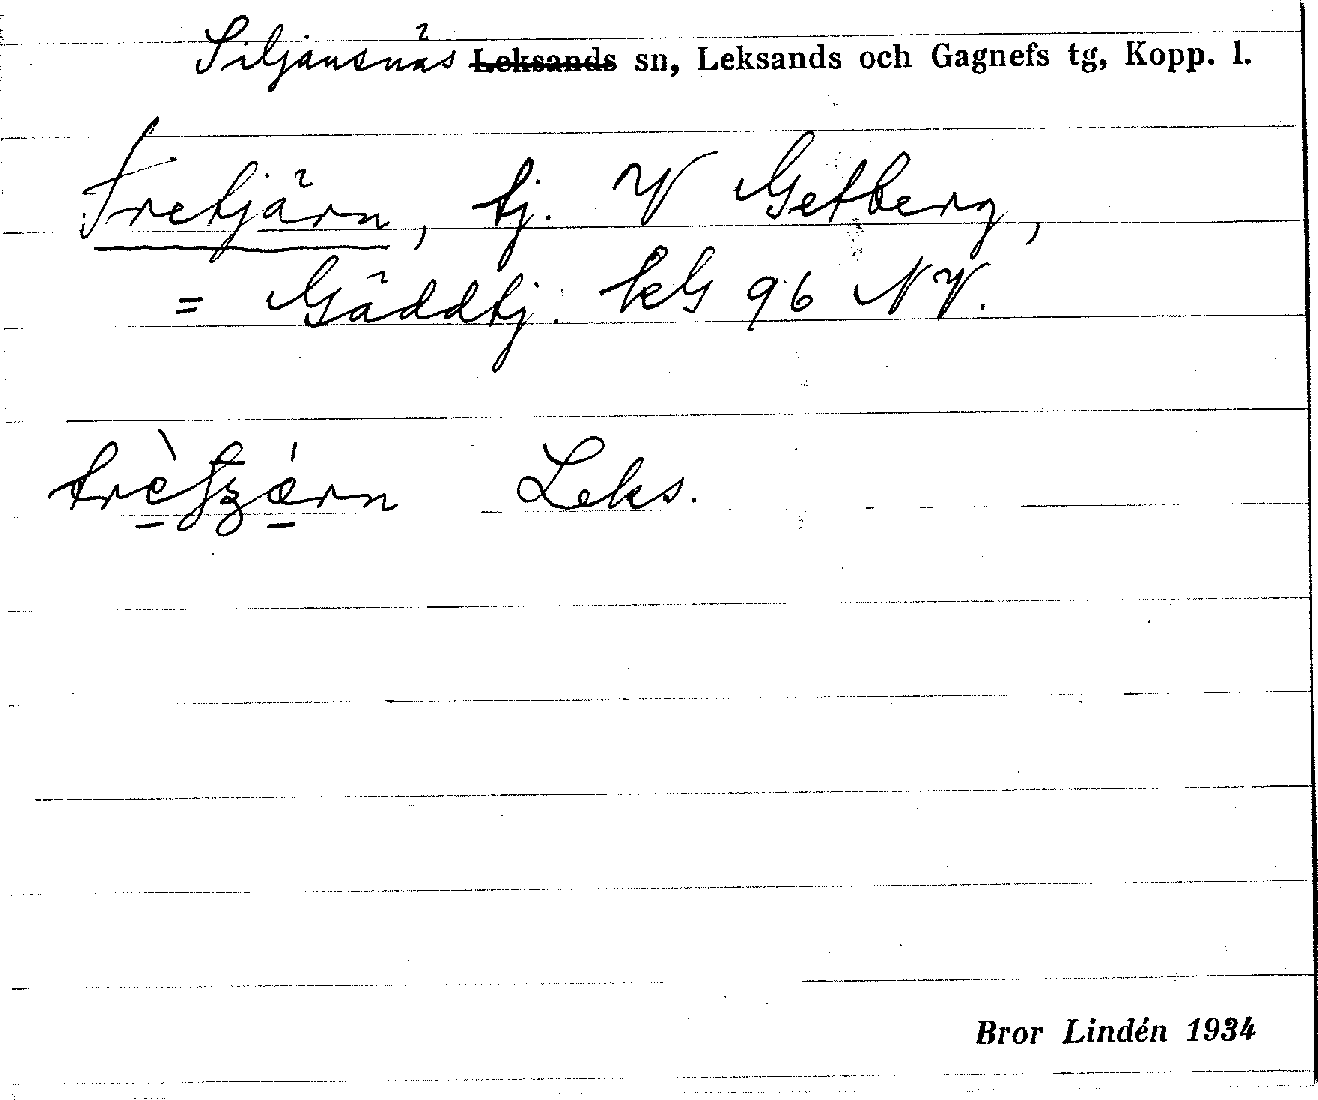 Siljansnäs Leksands sn, Leksands och Gagnefs tg, Kopp. l.
Tretjärn, tj. V Getberg,
= Gäddtj. kG 96 NV.
Leks.
Bror Lindén 1934